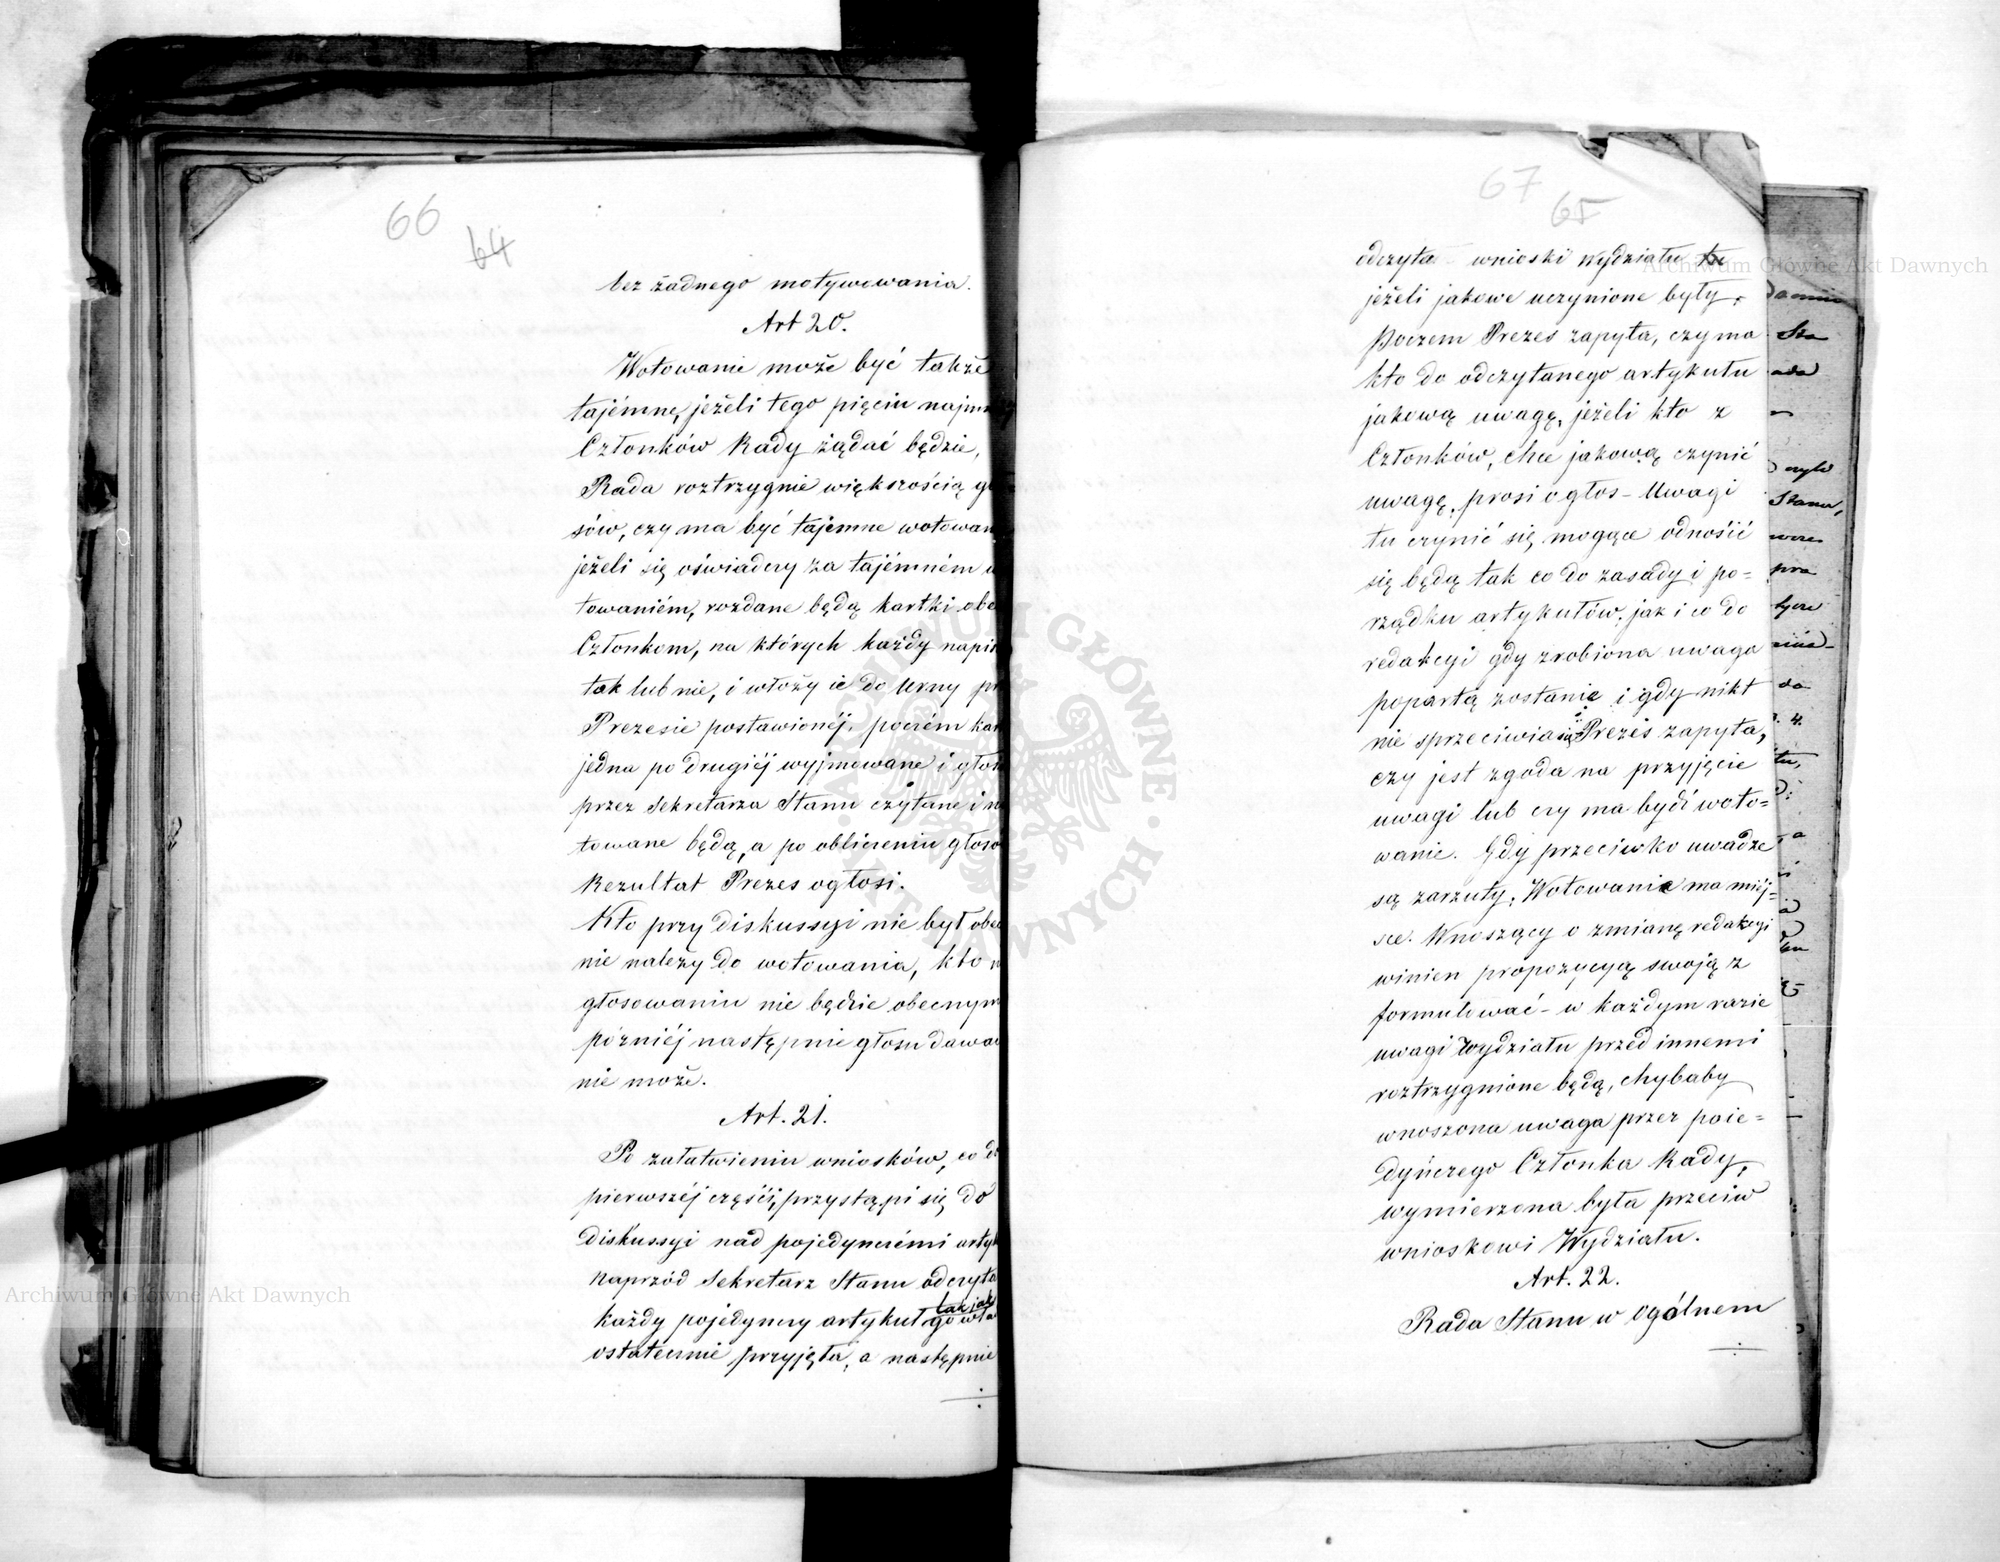 66
64
bez żadnego motywowania.
Art 20.
Wotowanie może być także
tajémne, jeżeli tego pięciu najmn
Członków Rady żądać będzie,
Rada roztrzygnie większością gł
sów, czy ma być tajemne wotowan
jeżeli się oświadczy za tajémném w
towaniém, rozdane będą kartki obe
Członkom, na których każdy napis
tak lub nie, i włoży ie do Urny pr
Prezesie postawionéj, poczém kar
jedna po drugiéj wyjmowane i głoś
przez Sekretarza Stanu czytane i no
towane będą, a po obliczeniu głosó
Rezultat Prezes ogłosi.
Kto przy diskussyi nie był obec
nie należy do wotowania, kto
głosowaniu nie będzie obecnym
późniéj następnie głosu dawać
nie może.
Art. 21.
Po załatwieniu wniosków, co do
pierwszéj części, przystąpi się do
diskussyi nad pojedynczémi artyk
naprzód Sekretarz Stanu odczyta
tak jak
każdy pojedynczy artykuł go
ostatecznie przyjęła, a następnie
67
65
odczyta wnioski Wydziału tu
jeżeli jakowe uczynione były.
Poczem Prezes zapyta, czy ma
kto do odczytanego artykułu
jakową uwagę, jeżeli kto z
Członków, chce jakową czynić
uwagę, prosi o głos – Uwagi
tu czynić się mogące odnosić
się będą tak co do zasady i po=
rządku artykułów, jak i co do
redakcyi gdy zrobiona uwaga
popartą zostanie i gdy nikt
nie sprzeciwia się Prezes zapyta,
czy jest zgoda na przyjęcie
uwagi lub czy ma bydź woto=
wanie. Gdy przeciwko uwadze
są zarzuty, Wotowanie ma miéj=
sce. Wnoszący o zmianę redakcyi
winien propozycyą swoją z
formułować – w każdym razie
uwagi Wydziału przed innemi
roztrzygnione będą, chybaby
wnoszona uwaga przez poie=
dyńczego Członka Rady,
wymierzona była przeciw
wnioskowi Wydziału.
Art. 22.
Rada Stanu w ogólnem
Archiwum Główne Akt Dawnych
Archiwum Główne Akt Dawnych
ARCHIWUM GŁÓWNE AKT DAWNYCH